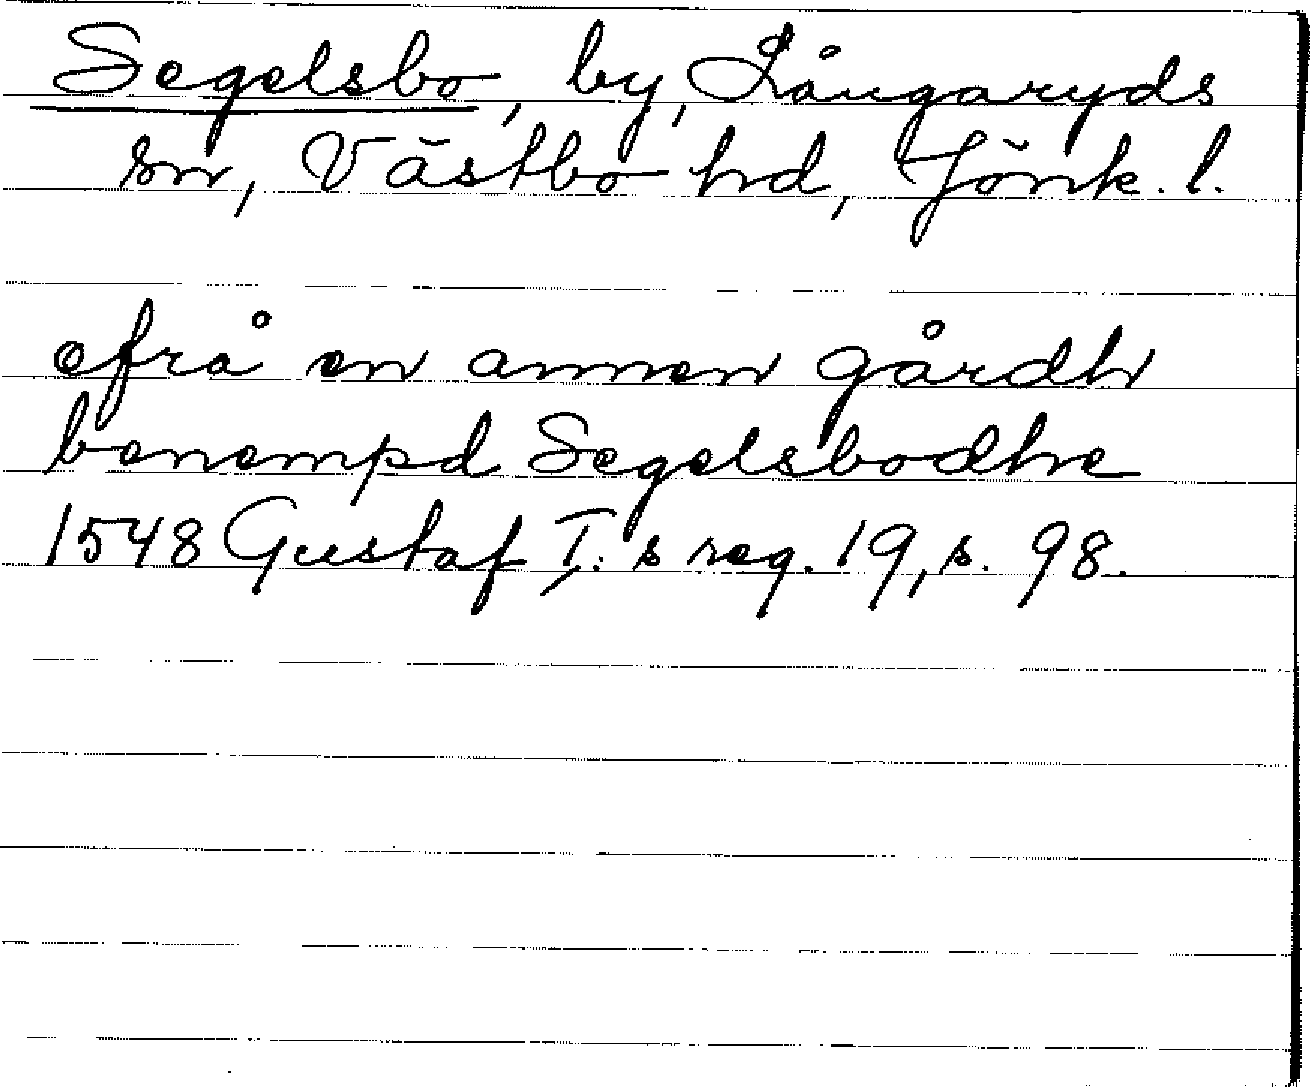 Segelsbo, by, Långaryds
sn, Västbo hd, Jönk. l.
efrå en annen gårdh
benempd Segelsbodhe
1548 Gustaf I: s reg. 19, s. 98.